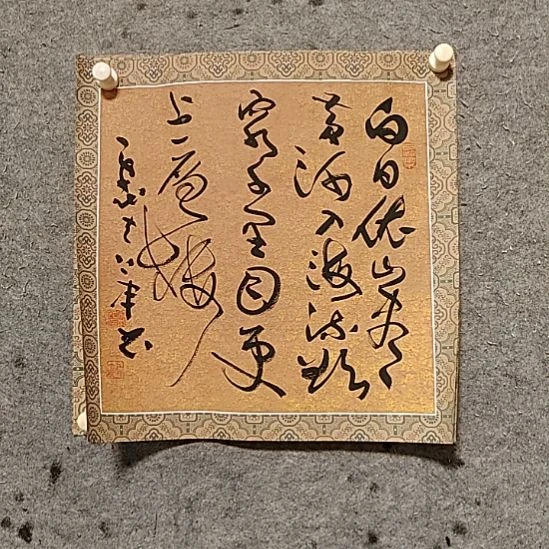 白日依山盡
黄河入海流欲
窮千里目更
上一層樓